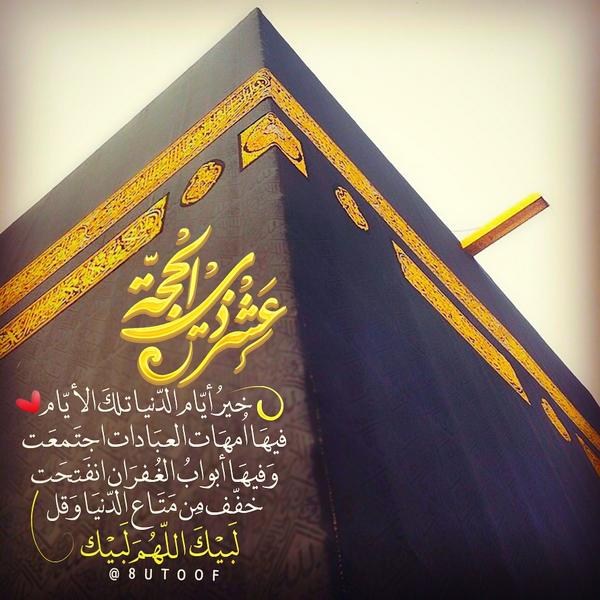 عَشْر ذِي الْحِجَّة
خيرُ أيّام الدّنيا تلكَ الأيّام
فيهَا أمهَات العبَادات اجتَمعَت
وَفيهَا أبوابُ الغُفرَان انفَتحَت
خفّف مِن مَتَاع الدّنيَا وَقل
لَبيْكَ اللّهُمَ لَبيْك
@8UTOOF